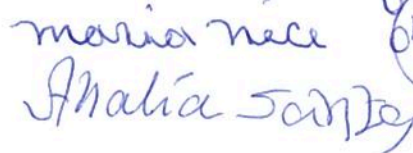 maria nice
Analia Santos